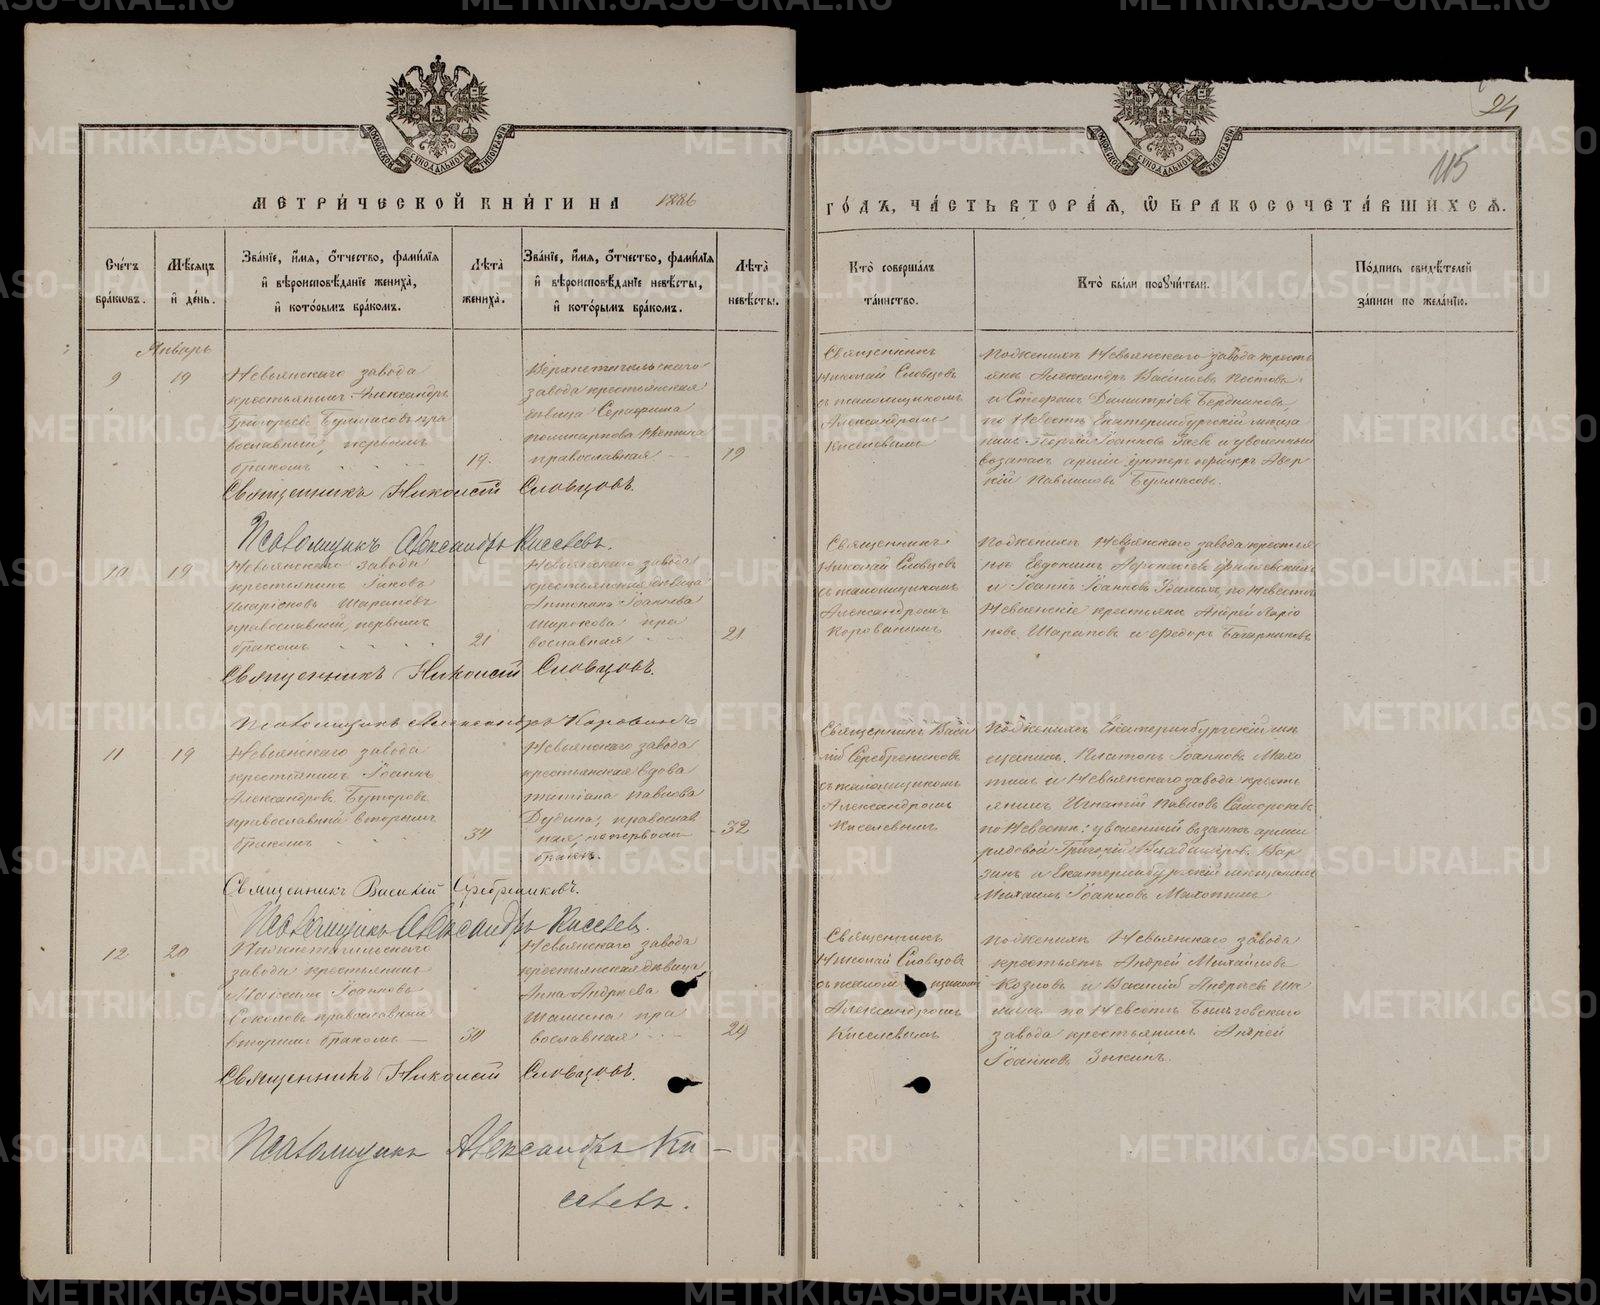 МЕТРИ́ЧЕСКОЙ КНИ́ГИ НА 1886
ГО́ДЪ, ЧА́СТЬ ВТОРА́Я, Ѽ БРАКОСОЧЕТА́ВШИХСЯ.
24
115
Сче́тъ бра́кѡвъ.
Мѣ́сяцъ и҆ де́нь.
Зва́нїе, и҆́мя, ѻ҆́тчество, фами́лїя и҆ вѣроисповѣ́данїе жениха̀, и҆ кото́рымъ бра́комъ.
Лѣ́та жениха̀.
Зва́нїе, и҆́мя, ѻ҆́тчество, фами́лїя и҆ вѣроисповѣ́данїе невѣ́сты, и҆ кото́рымъ бра́комъ.
Лѣ́та невѣ́сты.
Кто̀ соверша́лъ та́инство.
Кто̀ бы́ли поручи́тели.
По́дпись свидѣ́телей за́писи по жела́нїю.
Январь
9
19
Невьянскаго завода
крестьянинъ Александръ
Григорьевъ Бурмасовъ пра
вославный, первымъ
бракомъ
19.
Верхнетагильскаго
завода крестьянская
дѣвица Серафима
православная
19
Священникъ
Николай Словцовъ
съ псаломщикомъ
Александромъ
Киселевымъ
По женихѣ Невьянскаго завода кресть
яне Александръ Васильевъ
и Стефанъ Димитріевъ Бердниковъ,
по невѣстѣ Екатеринбургскій мѣща
нинъ Георгій Іоанновъ и уволенный
въ запасъ арміи унтеръ офицеръ Авер
кій Павловъ Бурмасовъ.
Священникъ Николай Словцовъ.
Псаломщикъ Александръ Киселевъ.
10
19
Невьянскаго завода
крестьянинъ Іаковъ
Иларіоновъ Шараповъ
православный, первымъ
бракомъ
21
Невьянскаго завода
крестьянская дѣвица
Антонина Іоаннова
Широкова пра
вославная
21
Священникъ
Николай Словцовъ
съ псаломщикомъ
Александромъ
Корованимъ
По женихѣ Невьянскаго завода крестья
не Евдокимъ
и Іоаннъ Іоанновъ по невѣстѣ
Невьянскіе крестьяне Андрей Ларіо
новъ Шараповъ и Федоръ
Священникъ Николай Словцовъ.
Псаломщикъ Александръ Корованъ
11
19
Невьянскаго завода
крестьянинъ Іоаннъ
Александровъ Буторовъ
православный вторымъ
бракомъ
34
Невьянскаго завода
крестьянская вдова
Татіана Павлова
Дудина, православ
ная, по первомъ
бракѣ.
32
Священникъ Васи
лій Серебренниковъ
съ псаломщикомъ
Александромъ
Киселевымъ
По женихѣ Екатеринбургскій мѣ
щанинъ Платонъ Іоанновъ Махо
тинъ и Невьянскаго завода кресть
янинъ Игнатій Павловъ
по невѣстѣ: уволенный въ запасъ арміи
рядовой Григорій Владиміровъ
и Екатеринбургскій мѣщанинъ
Михаилъ Іоанновъ Махотинъ
Священникъ Василій Серебренниковъ.
Псаломщикъ Александръ Киселевъ.
12
20
Нижнетагильскаго
завода крестьянинъ
Максимъ Іоанновъ
Соколовъ православный
вторымъ бракомъ
30
Невьянскаго завода
крестьянская дѣвица
Анна Андреева
Шалина пра
вославная
24
Священникъ
Николай Словцовъ
съ псаломщикомъ
Александромъ
Киселевымъ
По женихѣ Невьянскаго завода
крестьяне Андрей Михайловъ
Козловъ и Василій Андреевъ
по невѣстѣ
завода крестьянинъ Андрей
Іоанновъ Зыкинъ.
Священникъ Николай Словцовъ.
Псаломщикъ Александръ Ки-
селевъ.
METRIKI.GASO-URAL.RU